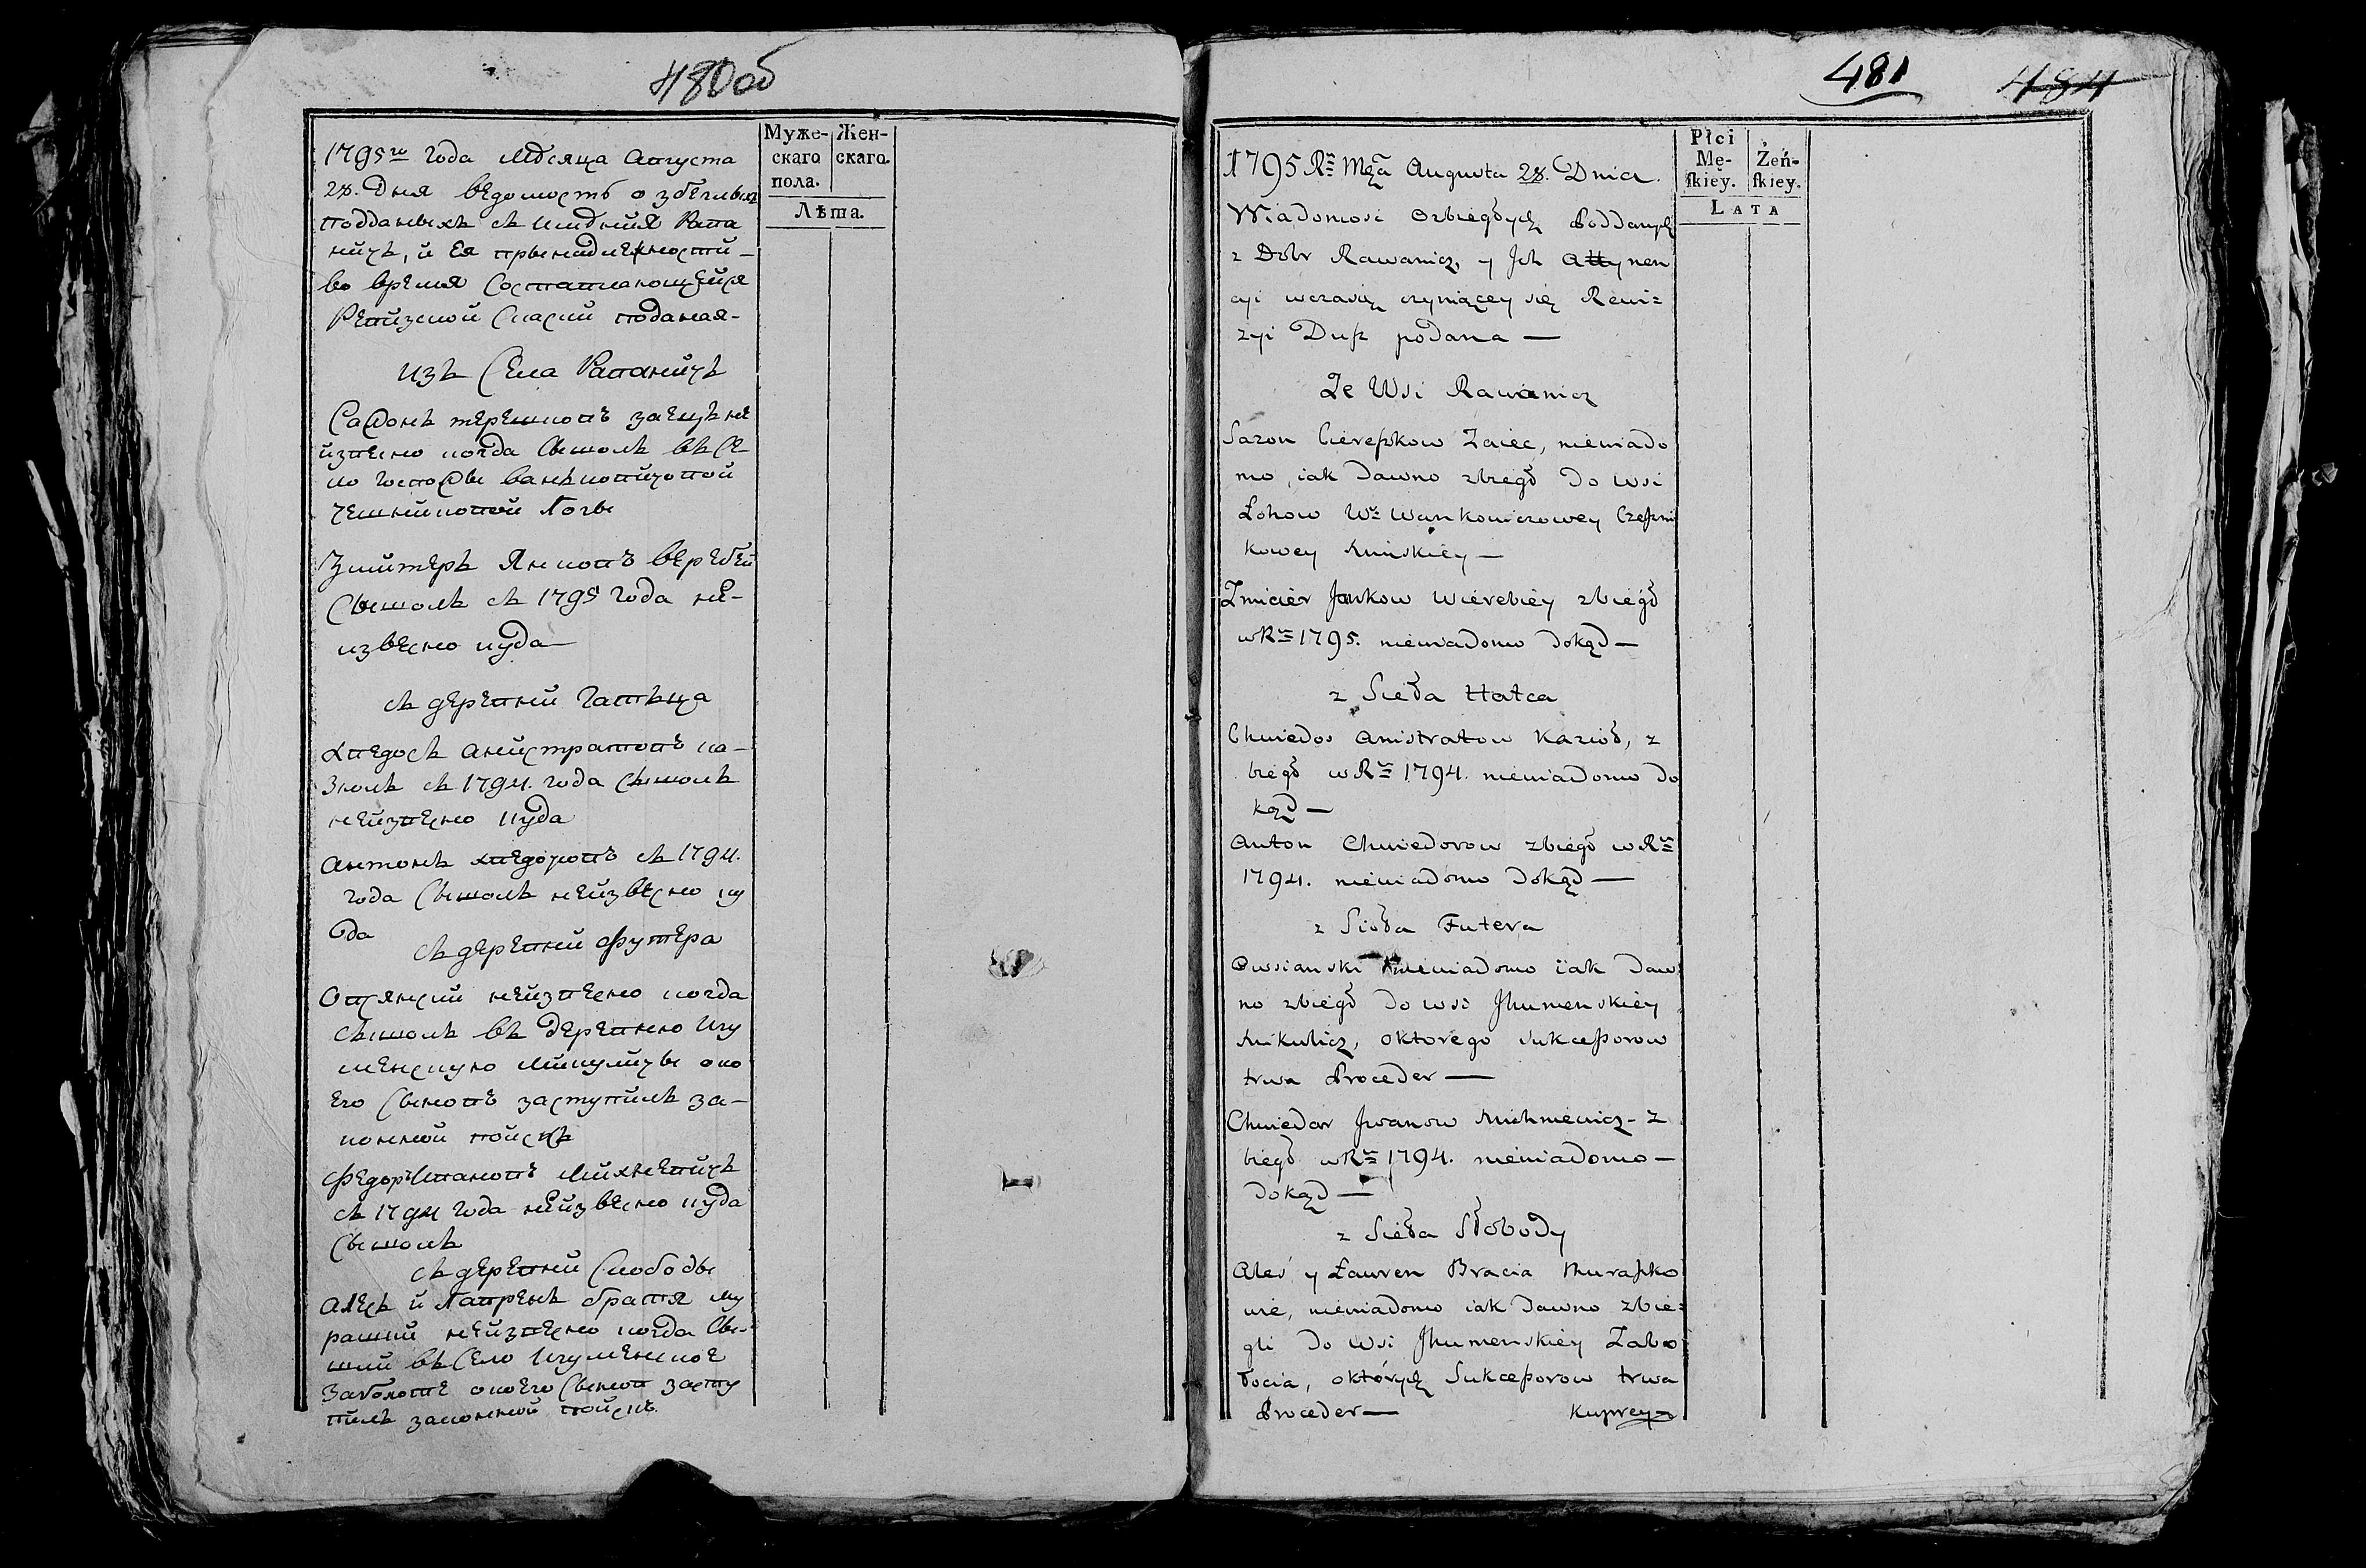 480об
Муже-
скаго
пола.
Жен-
скаго.
Лѣта.
1795го года Мѣсяца Августа
28. Дня вѣдомость о збеглыхъ
подданыхъ съ имѣнїя Рава
ничъ, и Ея принадлежности
во время Составляющейся
Ревизской Скаски поданая-
изъ Села Раваничъ
Сафонъ терешковъ заецъ не
извесно когда Сышолъ въ се
ло господы ваньковичовой
чешниковой Логвы
Змитеръ Янковъ веребей
Сышолъ съ 1795 года не-
извесно куда
съ деревни Гатьца
хведосъ анистратовъ ка-
зюлъ съ 1794. года сышолъ
неизвесно куда
антонъ хведоровъ съ 1794.
года Сышолъ неизвесно ку
да
съ деревни Футера
Овсянский неизвесно когда
сышолъ въ деревню Игу
менскую Микуличы око
его сыновъ заступилъ за-
конной поискъ
Федоръ Ивановъ Михневичъ
съ 1794 года неизвесно куда
Сышолъ
съ деревни Слободы
Алесь и Лавренъ братья Му
рашки неизвесно когда Сы-
шли въ Село Игуменское
Заболотье окоего Сыновъ засту
пилъ законной поискъ.
481
484
Płci
Mę-
skiey.
Żeń-
skiey.
LATA
1795 Rº Mca Augusta 28. Dnia.
Wiadomosć ozbiegłych Poddanych
z Dobr Rawanicz, y Jch Attynen
cyi wczasię czyniącey się Rewi=
zyi Dusz podana —
Ze Wsi Rawanicz
Sazon Cereszkow Zaiec, niewiado
mo, iak dawno zbiegł do wsi
Łohow Wº Wankowiczowey Czeszni
kowey Mińskiey —
Zmicier Jankow Wierebiey zbiegł
wRº 1795. niewiadomo dokąd —
z Sieła Hatca
Chwiedos Anistratow Kazioł, z
biegł wRº 1794. niewiadomo do
kąd —
Anton Chwiedorow zbiegł wRº
1794. niewiadomo dokąd —
z Sioła Futera
Owsianski niewiadomo iak daw
no zbiegł do wsi Jhumenskiey
Mikulicz, oktorego Sukcessorow
trwa Proceder —
Chwiedor Jwanow Michniewicz - z
biegł wRº 1794. niewiadomo —
dokąd —
z Sieła Słobody
Aleś y Ławren Bracia Muraszko
wie, niewiadomo iak dawno zbie=
gli do wsi Jhumenskiey Zabo
łocia, októrych Sukcessorow trwa
Proceder —
Kuprey